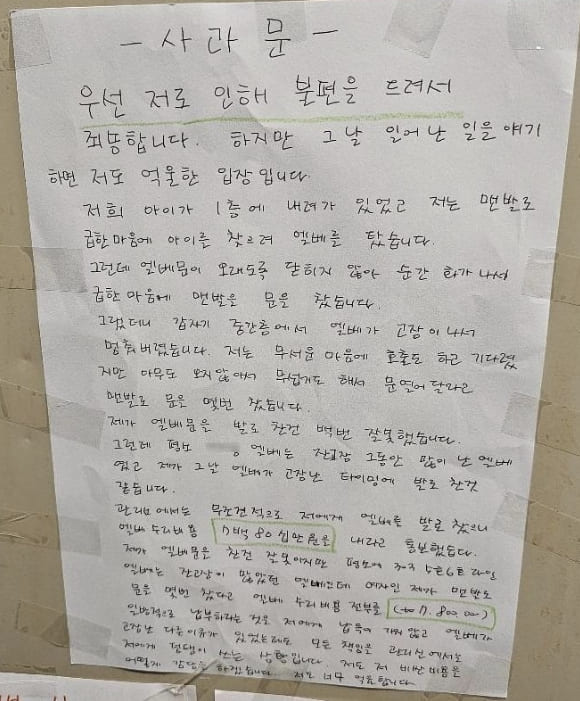 - 사 과 문 -
우선 저로 인해 불편을 드려서
죄송합니다. 하지만 그날 일어난 일을 얘기
하면 저도 억울한 입장입니다.
저희 아이가 1층에 내려가 있었고 저는 맨발로
급한마음에 아이를 찾으려 엘베를 탔습니다.
그런데 엘베문이 오래도록 닫히지 않아 순간 화가 나서
급한 마음에 맨발로 문을 찼습니다.
그랬더니 갑자기 중간층에서 엘베가 고장이 나서
멈춰버렸습니다. 저는 무서운 마음에 호출도 하고 기다렸
지만 아무도 오지않아서 무섭기도 해서 문열어 달라고
맨발로 문을 몇번 찼습니다.
제가 엘베문을 발로 찬건 백번 잘못했습니다.
그런데 평소 엘베는 잔고장 그동안 많이 난 엘베
였고 제가 그날 엘베가 고장난 타이밍에 발로 찬것
같습니다.
관리소에서는 무조건적으로 저에게 엘베를 발로 찼으니
엘베 수리비용 7백 80 십만원을 내라고 통보했습니다.
제가 엘베문을 찬건 잘못이지만 평소에 303동 5호6호 라인
엘베는 잔고장이 많았던 엘베인데 여자인 제가 맨발로
문을 몇번 찼다고 엘베 수리비용 전부를 7,800,000)
일방적으로 납부하라는 것은 저에게 납득이 가지 않고 엘베가
고장난 다른이유가 있었는데도 모든 책임을 관리실에서는
저에게 덤탱이 쓰는 상황입니다. 저도 저 비싼 비용을
어떻게 감당을 하겠습니다. 저도 너무 억울합니다.